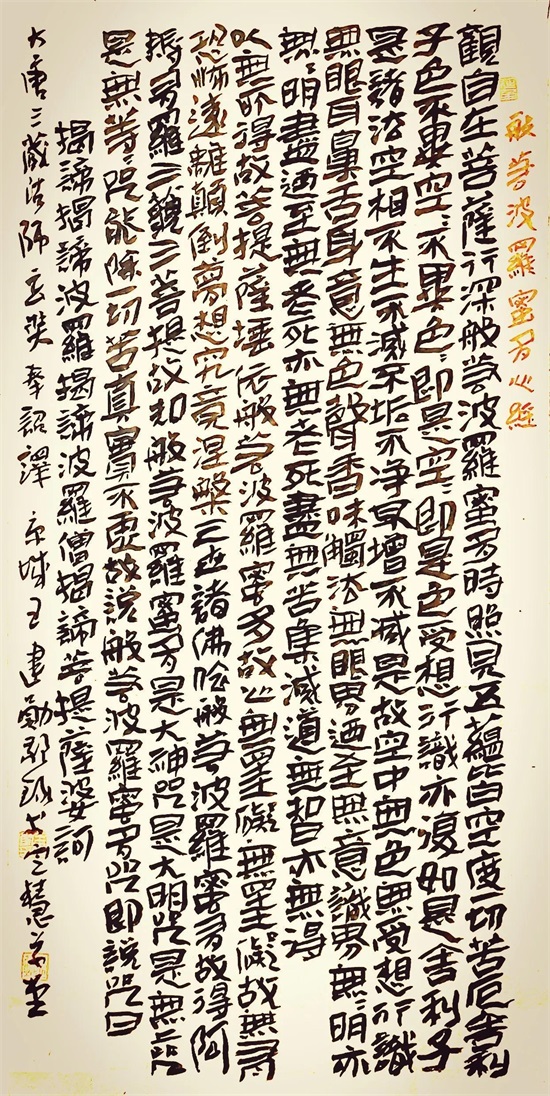 般若波羅蜜多心經
觀自在菩薩行深般若波羅蜜多時照見五蘊皆空度一切苦厄舍利
子色不異空々不異色々即是空々即是色受想行識亦復如是舍利子
是諸法空相不生不滅不垢不淨不增不減是故空中無色無受想行識
無眼耳鼻舌身意無色聲香味觸法無眼界迺至無意識界無々明亦
無々明盡迺至無老死亦無老死盡無苦集滅道無智亦無得
以無所得故菩提薩埵依般若波羅蜜多故心無罣礙無罣礙故無有
恐怖遠離顛倒夢想究竟涅槃三世諸佛依般若波羅蜜多故得阿
耨多羅三藐三菩提故知般若波羅蜜多是大神咒是大明咒是無上咒
是無等々咒能除一切苦真實不虛故說般若波羅蜜多咒即說咒曰
揭諦揭諦波羅揭諦波羅僧揭諦菩提薩婆訶
大唐三藏法師玄奘奉詔譯 京城王建勛敬